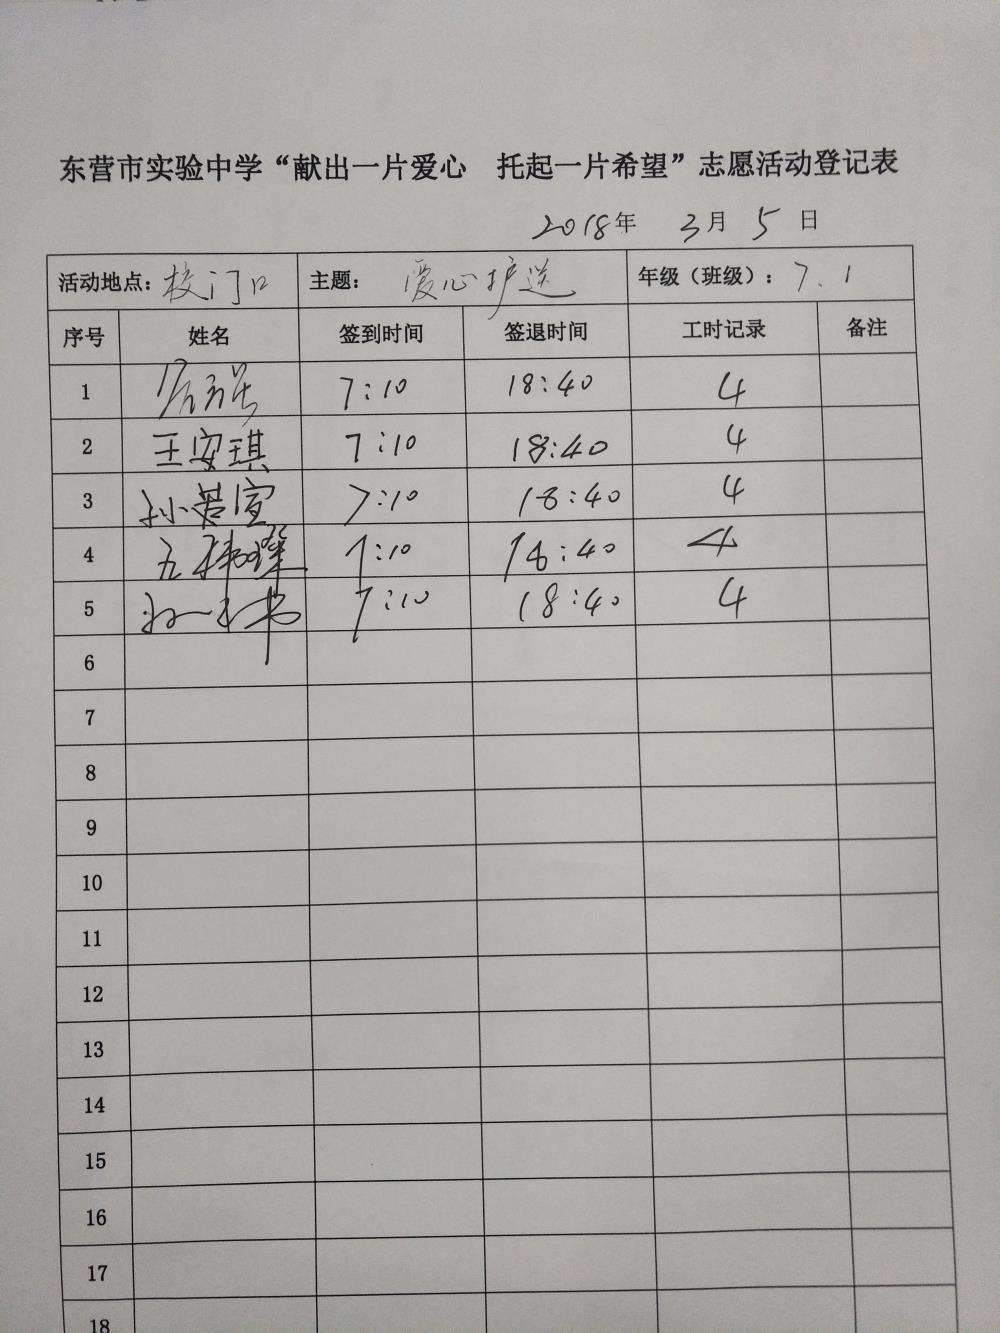 东营市实验中学“献出一片爱心 托起一片希望”志愿活动登记表
2018年 3月 5日
活动地点：校门口 主题：爱心护送 年级（班级）：7.1
序号 姓名 签到时间 签退时间 工时记录 备注
1 7:10 18:40 4
2 王安琪 7:10 18:40 4
3 孙若萱 7:10 18:40 4
4 7:10 18:40 4
5 7:10 18:40 4
6
7
8
9
10
11
12
13
14
15
16
17
18